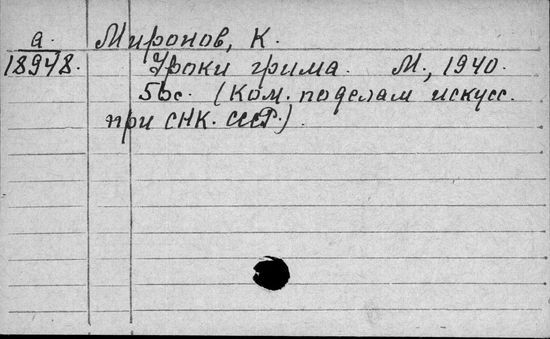 а. Миронов, К.
18948. Уроки грима. М., 1940.
56с. (Ком. по делам искусс.
при СНК. СССР.).